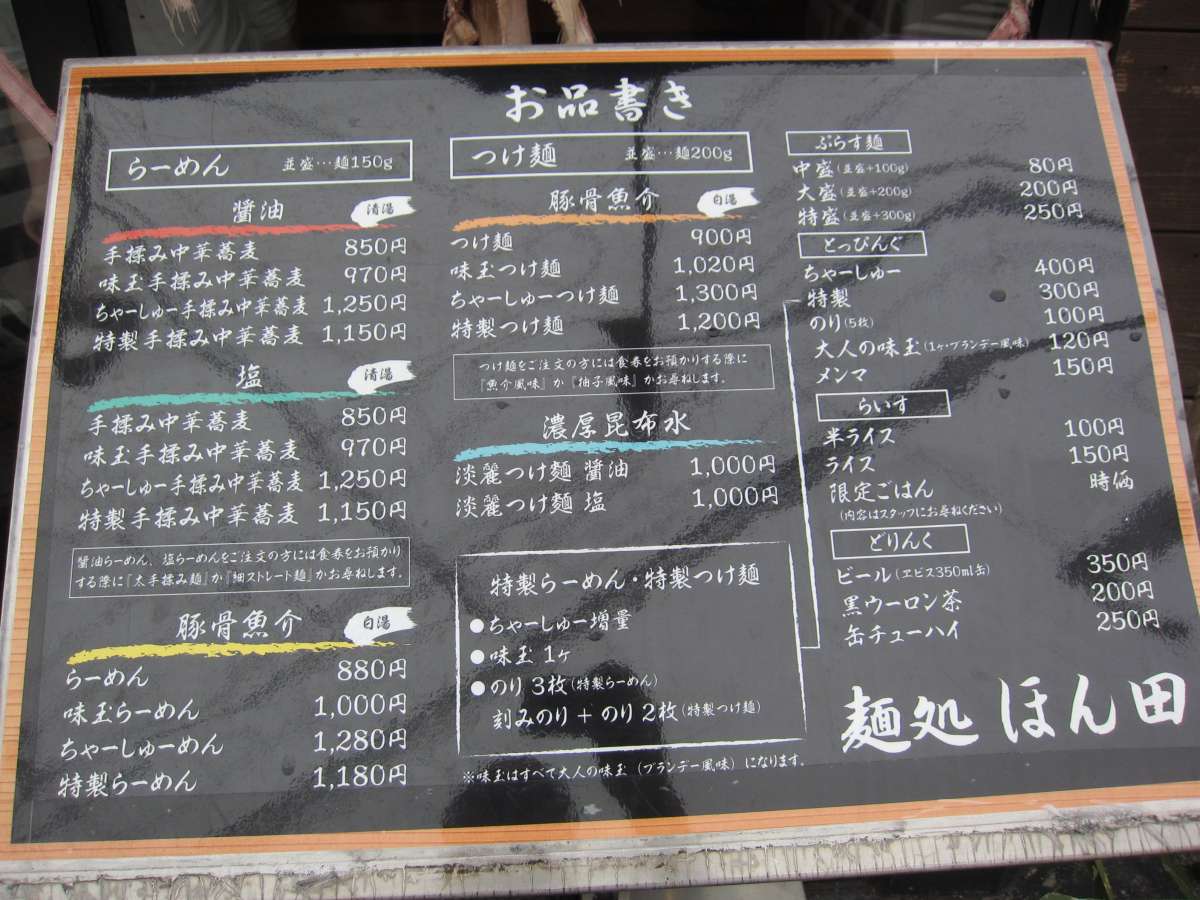 お品書き
らーめん 並盛…麺150g
醤油 清湯
手揉み中華蕎麦 850円
味玉手揉み中華蕎麦 970円
ちゃーしゅー手揉み中華蕎麦 1,250円
特製手揉み中華蕎麦 1,150円
塩 清湯
手揉み中華蕎麦 850円
味玉手揉み中華蕎麦 970円
ちゃーしゅー手揉み中華蕎麦 1,250円
特製手揉み中華蕎麦 1,150円
醤油らーめん、塩らーめんをご注文の方には食券をお預かり
する際に『太手揉み麺』か『細ストレート麺』かお尋ねします。
豚骨魚介 白湯
らーめん 880円
味玉らーめん 1,000円
ちゃーしゅーめん 1,280円
特製らーめん 1,180円
つけ麺 並盛…麺200g
豚骨魚介 白湯
つけ麺 900円
味玉つけ麺 1,020円
ちゃーしゅーつけ麺 1,300円
特製つけ麺 1,200円
つけ麺をご注文の方には食券をお預かりする際に
『魚介風味』か『柚子風味』かお尋ねします。
濃厚昆布水
淡麗つけ麺 醤油 1,000円
淡麗つけ麺 塩 1,000円
特製らーめん・特製つけ麺
●ちゃーしゅー増量
●味玉 1ヶ
●のり 3枚(特製らーめん)
刻みのり + のり 2枚(特製つけ麺)
※味玉はすべて大人の味玉(ブランデー風味)になります。
ぷらす麺
中盛(並盛+100g) 80円
大盛(並盛+200g) 200円
特盛(並盛+300g) 250円
とっぴんぐ
ちゃーしゅー 400円
特製 300円
のり(5枚) 100円
大人の味玉(1ヶ・ブランデー風味) 120円
メンマ 150円
らいす
半ライス 100円
ライス 150円
限定ごはん 時価
(内容はスタッフにお尋ねください)
どりんく
ビール(ヱビス350ml缶) 350円
黒ウーロン茶 200円
缶チューハイ 250円
麺処 ほん田